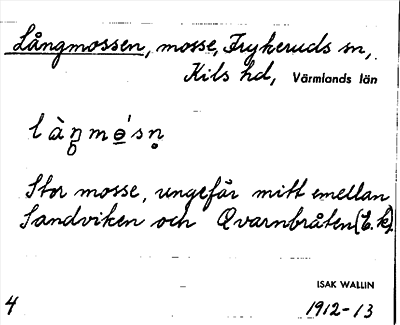 Långmossen, mosse, Frykeruds sn,
Kils hd, Värmlands län
Stor mosse, ungefär mitt emellan
Sandviken och Qvarnbråten (E. k).
ISAK WALLIN
4
1912-13